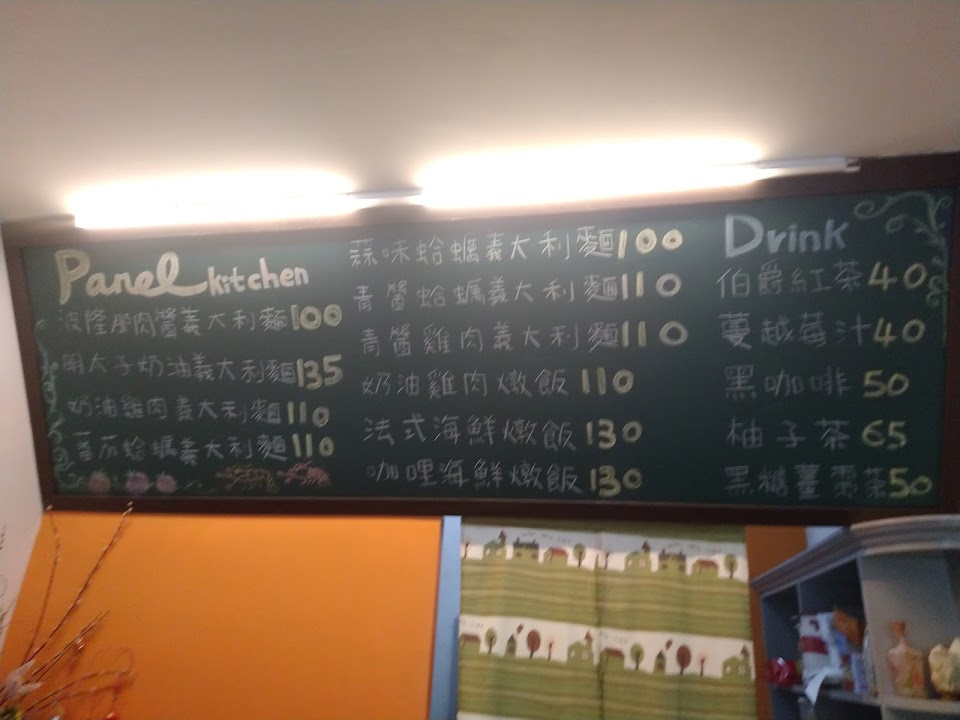 Panel kitchen
波隆那肉醬義大利麵100
明太子奶油義大利麵135
奶油雞肉義大利麵110
番茄蛤蠣義大利麵110
蒜味蛤蠣義大利麵100
青醬蛤蠣義大利麵110
青醬雞肉義大利麵110
奶油雞肉燉飯 110
法式海鮮燉飯 130
咖哩海鮮燉飯130
Drink
伯爵紅茶40
蔓越莓汁40
黑咖啡 50
柚子茶 65
黑糖薑 茶50